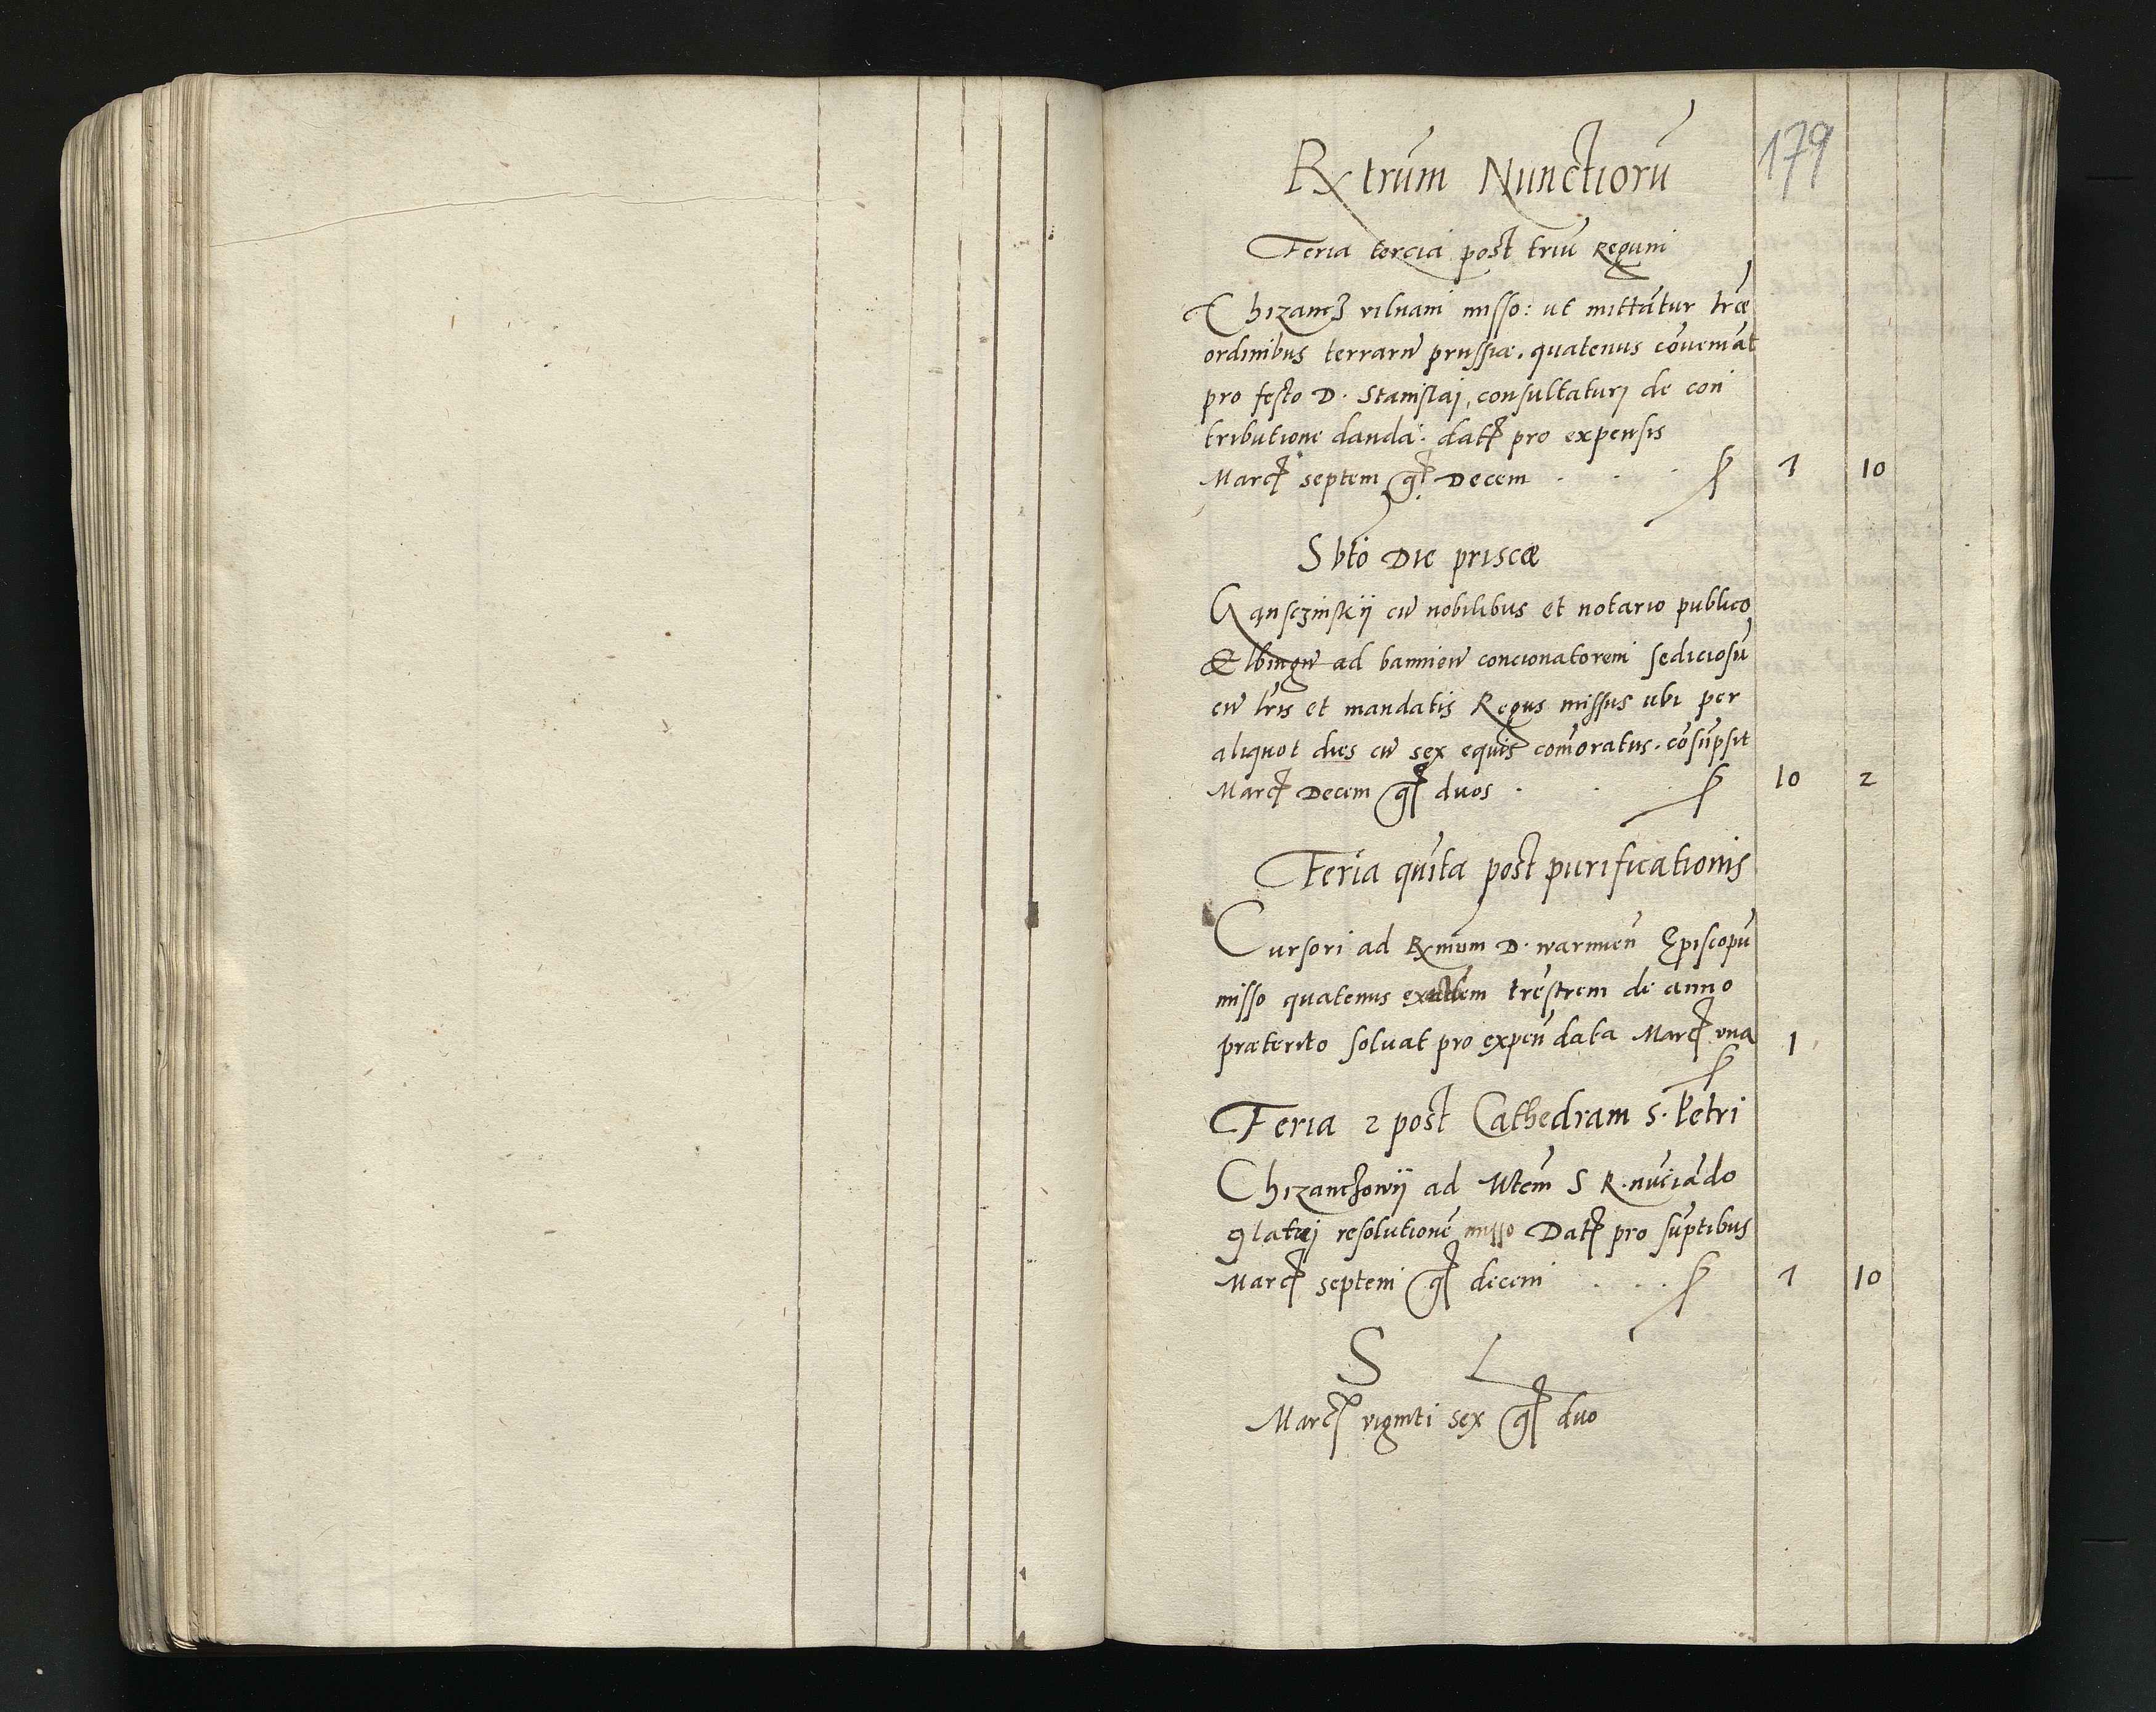 179
Rx trum Nunctiorū
Feria tercia post triū Regum
Chizancz vilnam misso: ut mittātur lræ
ordinibus terrarū prussiæ. quatenus cōueniāt
pro festo D. Stanislaj, consultaturj de con
tributione danda. dat pro expensis
Marc septem gr Decem . . . 7 10
Sbto Die priscæ
cū nobilibus et notario publico
Elbingū ad concionatorem sediciosū
cū lris et mandatis Regus missus ubi per
aliquot dies cū sex equis comoratus. cōsūpsit
Marc Decem gr duos . . . 10 2
Feria quīta post purificationis
Cursori ad Rxmum D. warmien Episcopū
misso quatenus de anno
præterito soluat pro expen data Marc vna 1
Feria 2 post Cathedram S. Petri
Chizanczowij ad Mtem S R. nūciādo
resolutionē misso Dat pro sūptibus
Marc septem gr decem . . . 7 10
S L
Marc viginti sex gr duo